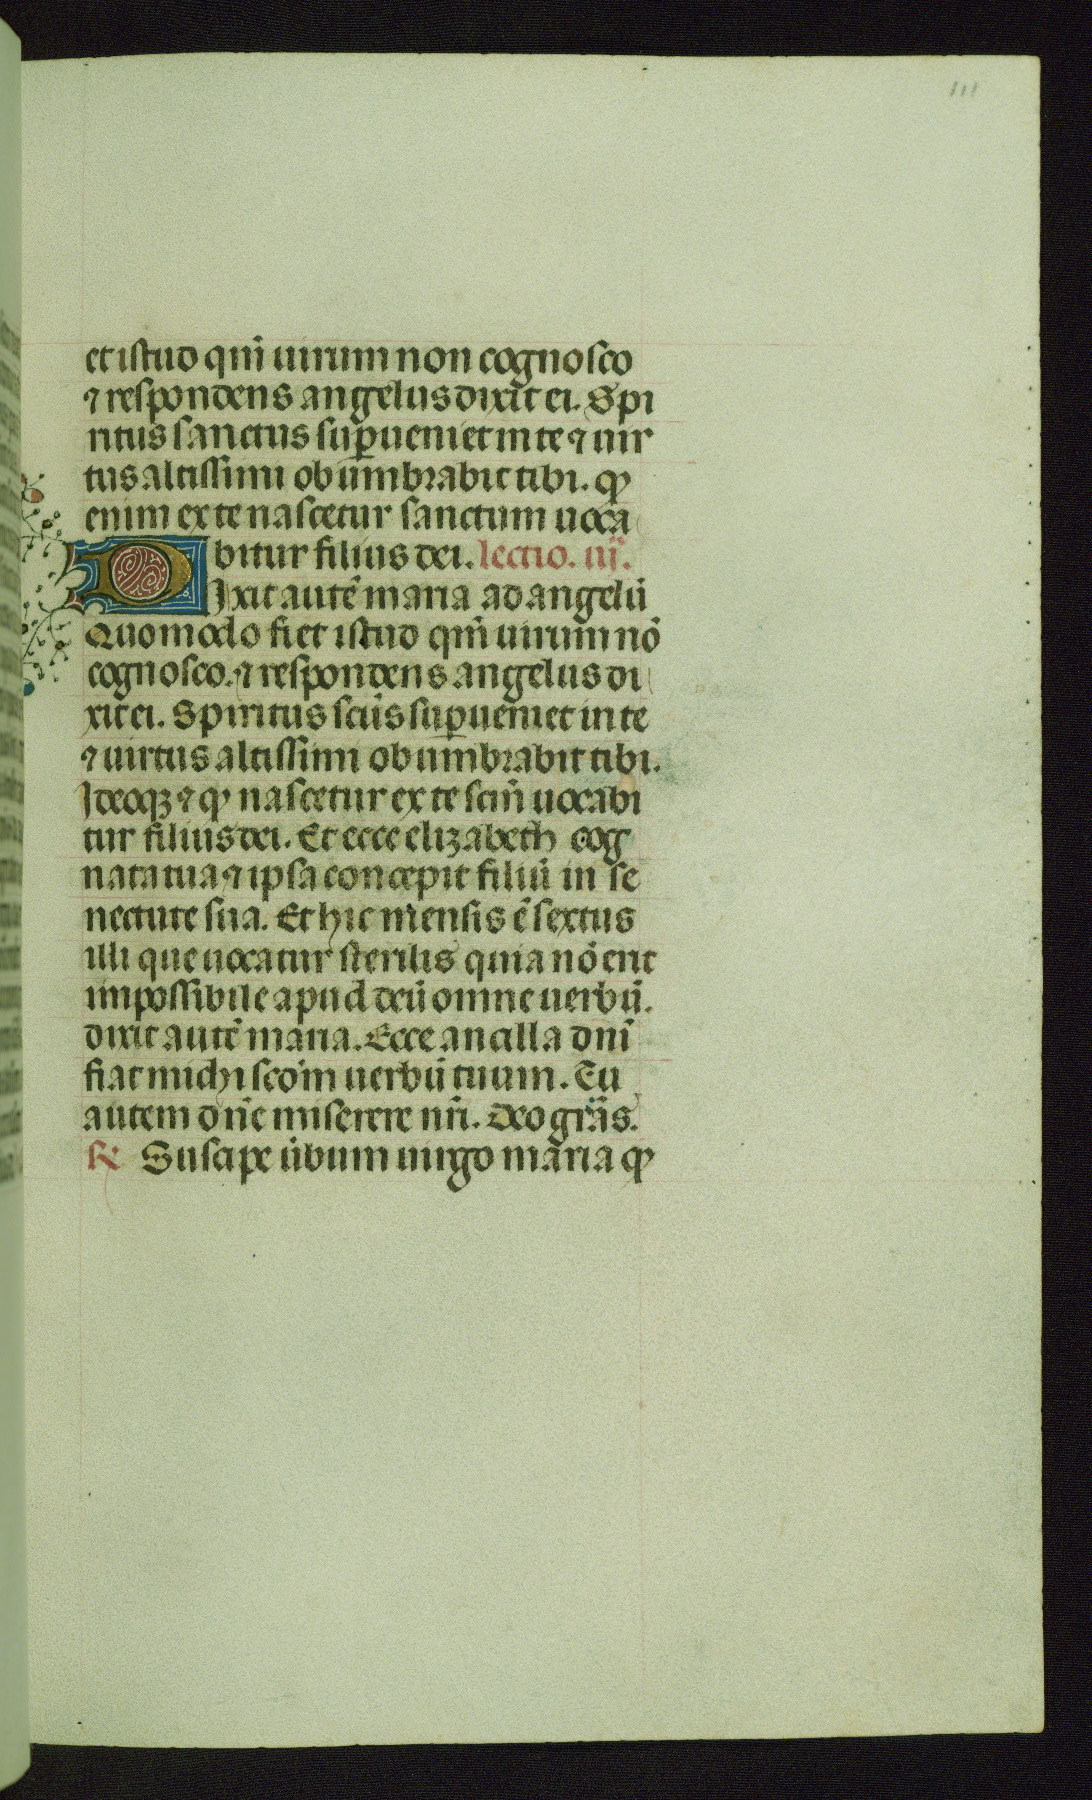 111
et istud qm̄ uirum non cognosco
⁊ respondens angelus dixit ei. Spi
ritus sanctus suꝑueniet in te ⁊ uir
tus altissimi obumbrabit tibi. ꝙ
enim ex te nascetur sanctum uoca
bitur filius dei. lectio. iij̄.
DIxit autē maria ad angelū
Quomodo fiet istud qm̄ uirum nō
cognosco. ⁊ respondens angelus di
xit ei. Spiritus sc̄us suꝑueniet in te
⁊ uirtus altissimi obumbrabit tibi.
Ideoqꝫ ⁊ ꝙ nascetur ex te scm̄ uocabi
tur filius dei. Et ecce elizabeth cog
nata tua ⁊ ipsa concepit filiū in se
nectute sua. Et hic mensis ē sextus
illi que uocatur sterilis quia nō erit
impossibile apud deū omne uerbū.
dixit autē maria. Ecce ancilla dn̄i
fiat michi scd̄m uerbū tuum. Tu
autem dn̄e miserere nr̄i. Deo gr̄as.
℟ Suscipe ūbum uirgo maria ꝙ